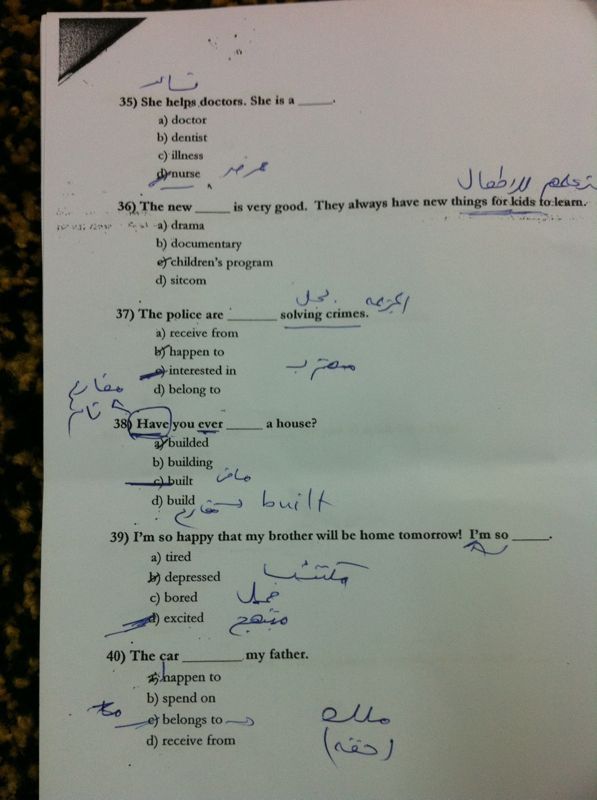 تساعد
35) She helps doctors. She is a _____.
a) doctor
b) dentist
c) illness
d) nurse
للاطفال
36) The new _____ is very good. They always have new things for kids to learn.
a) drama
b) documentary
c) children's program
d) sitcom
الجريمة
37) The police are _______ solving crimes.
a) receive from
b) happen to
c) interested in
d) belong to
مضارع
تام
38) Have you ever _____ a house?
a) builded
b) building
c) built
d) build
مضارع built
39) I'm so happy that my brother will be home tomorrow! I'm so _____.
a) tired
b) depressed
c) bored
d) excited مبتهج
40) The car ________ my father.
a) happen to
b) spend on
c) belongs to
d) receive from
(حقه)